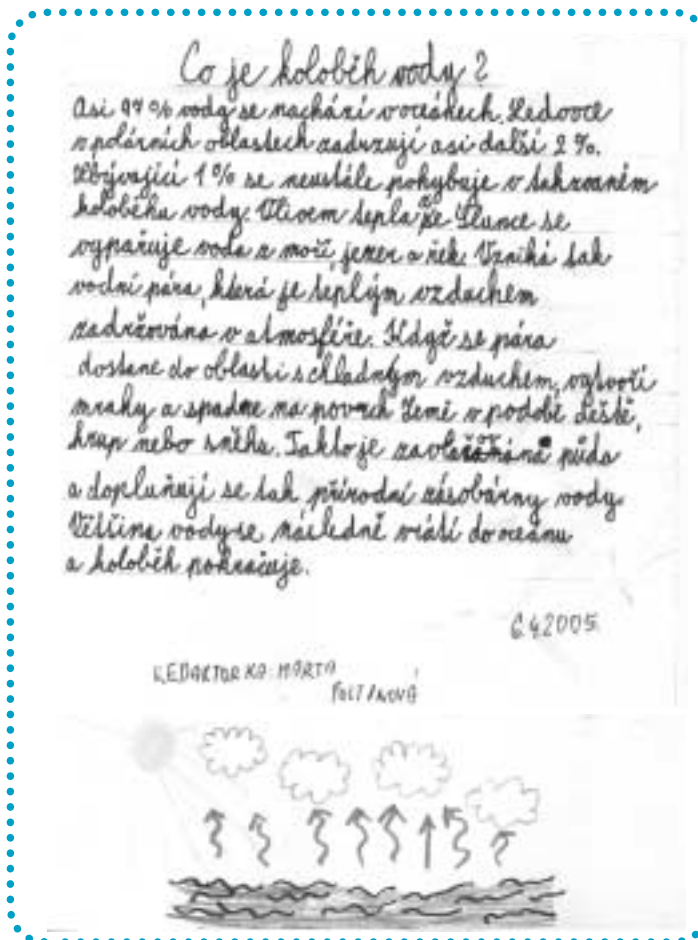 Co je koloběh vody?
Asi 97% vody se nachází v oceánech. Ledovce
v polárních oblastech zadrzují asi další 2%.
Zbývající 1% se neustále pohybuje v takzvaném
koloběhu vody. Vlivem tepla ze Slunce se
vypařuje voda z moří, jezer a řek. Vzniká tak
vodní pára, která je teplým vzduchem
zadržována v atmosféře. Když se pára
dostane do oblasti s chladným vzduchem, vytvoří
mraky a spadne na povrch Země v podobě deště,
krup nebo sněhu. Takto je půda
a doplňují se tak přírodní zásobárny vody.
Většina vody se následně vrátí do oceánu
a koloběh pokračuje.
6.4.2005
REDAKTORKA: MARTA